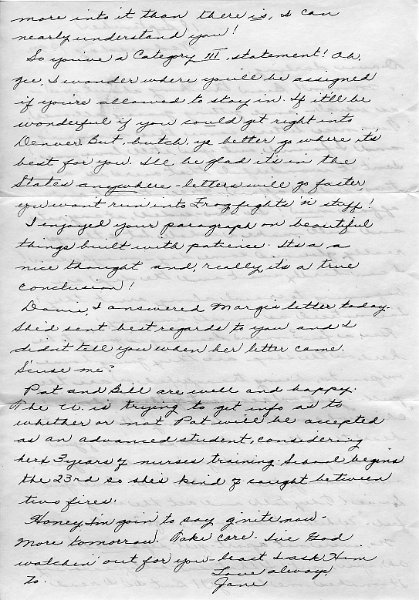 more into it than there is, I can
nearly understand you!
So you've a Category III, statement! Oh,
gee, I wonder where you'll be assigned
if you're allowed to stay in. It'll be
wonderful if you could get right into
Denver. But, butch, ye better go where its
best for you. I'll be glad its in the
States anywhere - letters will go faster
you won't run into Frog fights 'n' stuff!
I enjoyed your paragraph on beautiful
things built with patience. Its a a
nice thought and, really, its a true
conclusion!
I answered Margie letter today.
She'd sent best regards to you and I
didn't tell you when her letter came.
S'cuse me?
Pat and Bill are well and happy.
The U. is trying to get info as to
whether or not Pat will be accepted
as an advanced student, considering
her 3 years of nurses training. School begins
the 23rd so she's kind of caught between
two fires.
Honey I'm goin to say g'nite, now.
More tomorrow. Take care. I've God
watchin' out for you - least I ask Him
to.
Love always
Jane